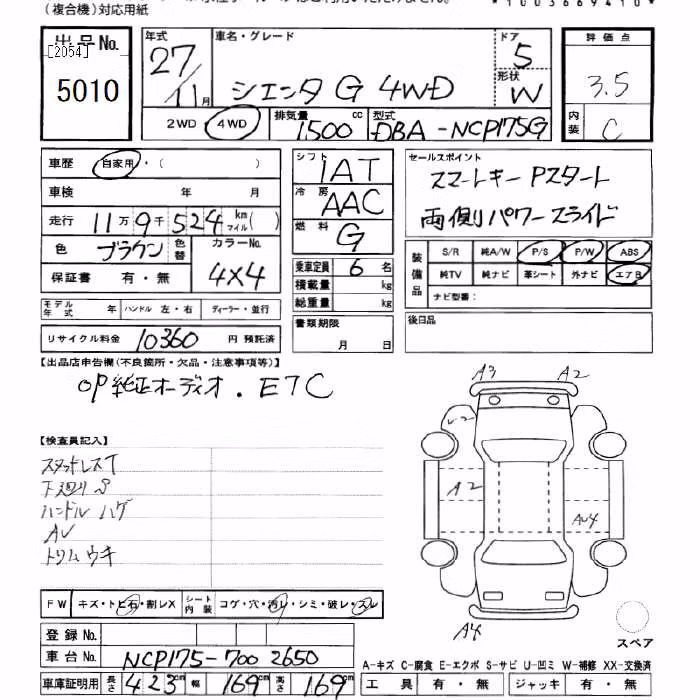 (複合機)対応用紙
*1003669410*
出品No. [2054] 5010
年式 27/11月
車名・グレード シエンタ G 4WD
ドア 5
形状 W
評価点 3.5
内装 C
2WD 4WD
排気量 1500 cc
型式 DBA-NCP175G
車歴 自家用・( )
車検 年 月
走行 11万9千524 km マイル( )
色 ブラウン 色替 カラーNo. 4X4
保証書 有・無
シフト IAT
冷房 AAC
燃料 G
乗車定員 6名
積載量 kg
総重量 kg
セールスポイント
スマートキー Pスタート
両側パワースライド
装備品 S/R 純A/W P/S P/W ABS
純TV 純ナビ 革シート 外ナビ エアB
ナビ型番:
モデル年式 年 ハンドル 左・右 ディーラー・並行
リサイクル料金 10360 円 預託済
書類期限 月 日
後日品
【出品店申告欄(不良箇所・欠品・注意事項等)】
OP純正オーディオ. ETC
【検査員記入】
スタットレスT
下廻りS
ハンドル ハゲ
AV
トリム ウキ
A3 A2
A2
A4
FW キズ・トビ石・割レX シート内装 コゲ・穴・汚レ・シミ・破レ・スレ
登録No.
車台No. NCP175-7002650
車庫証明用 長さ 423 cm 幅 169 cm 高さ 169 cm
スペア
A-キズ C-腐食 E-エクボ S-サビ U-凹ミ W-補修 XX-交換済
工具 有・無 ジャッキ 有・無